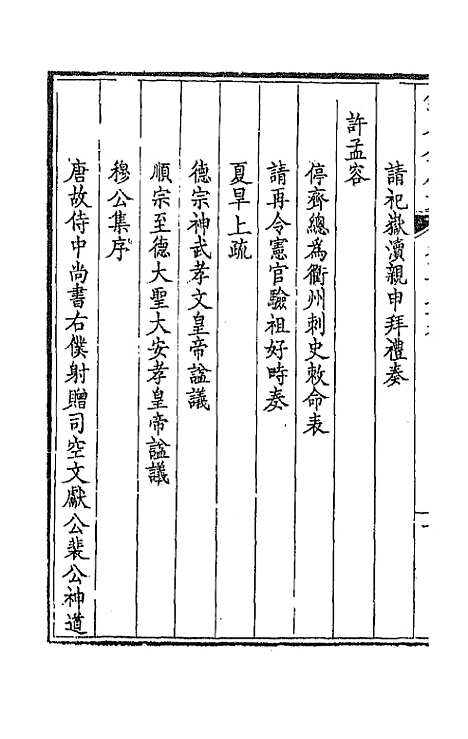 請祀嶽瀆親申拜禮奏
許孟容
停齊總為衢州刺史敕命表
請再令憲官驗祖好時奏
夏旱上疏
德宗神武孝文皇帝諡議
順宗至德大聖大安孝皇帝諡議
穆公集序
唐故侍中尚書右僕射贈司空文獻公裴公神道